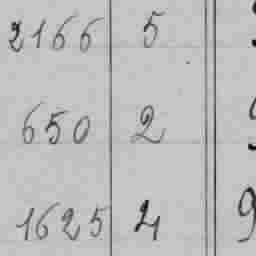 2166 5
650 2
1625 4 9